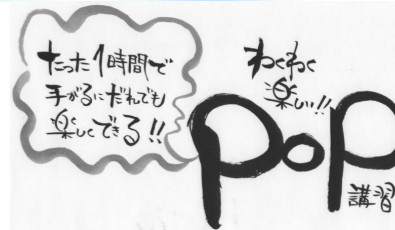 たった1時間で
手がるにだれでも
楽しくできる!!
わくわく
楽しい!!
POP
講習